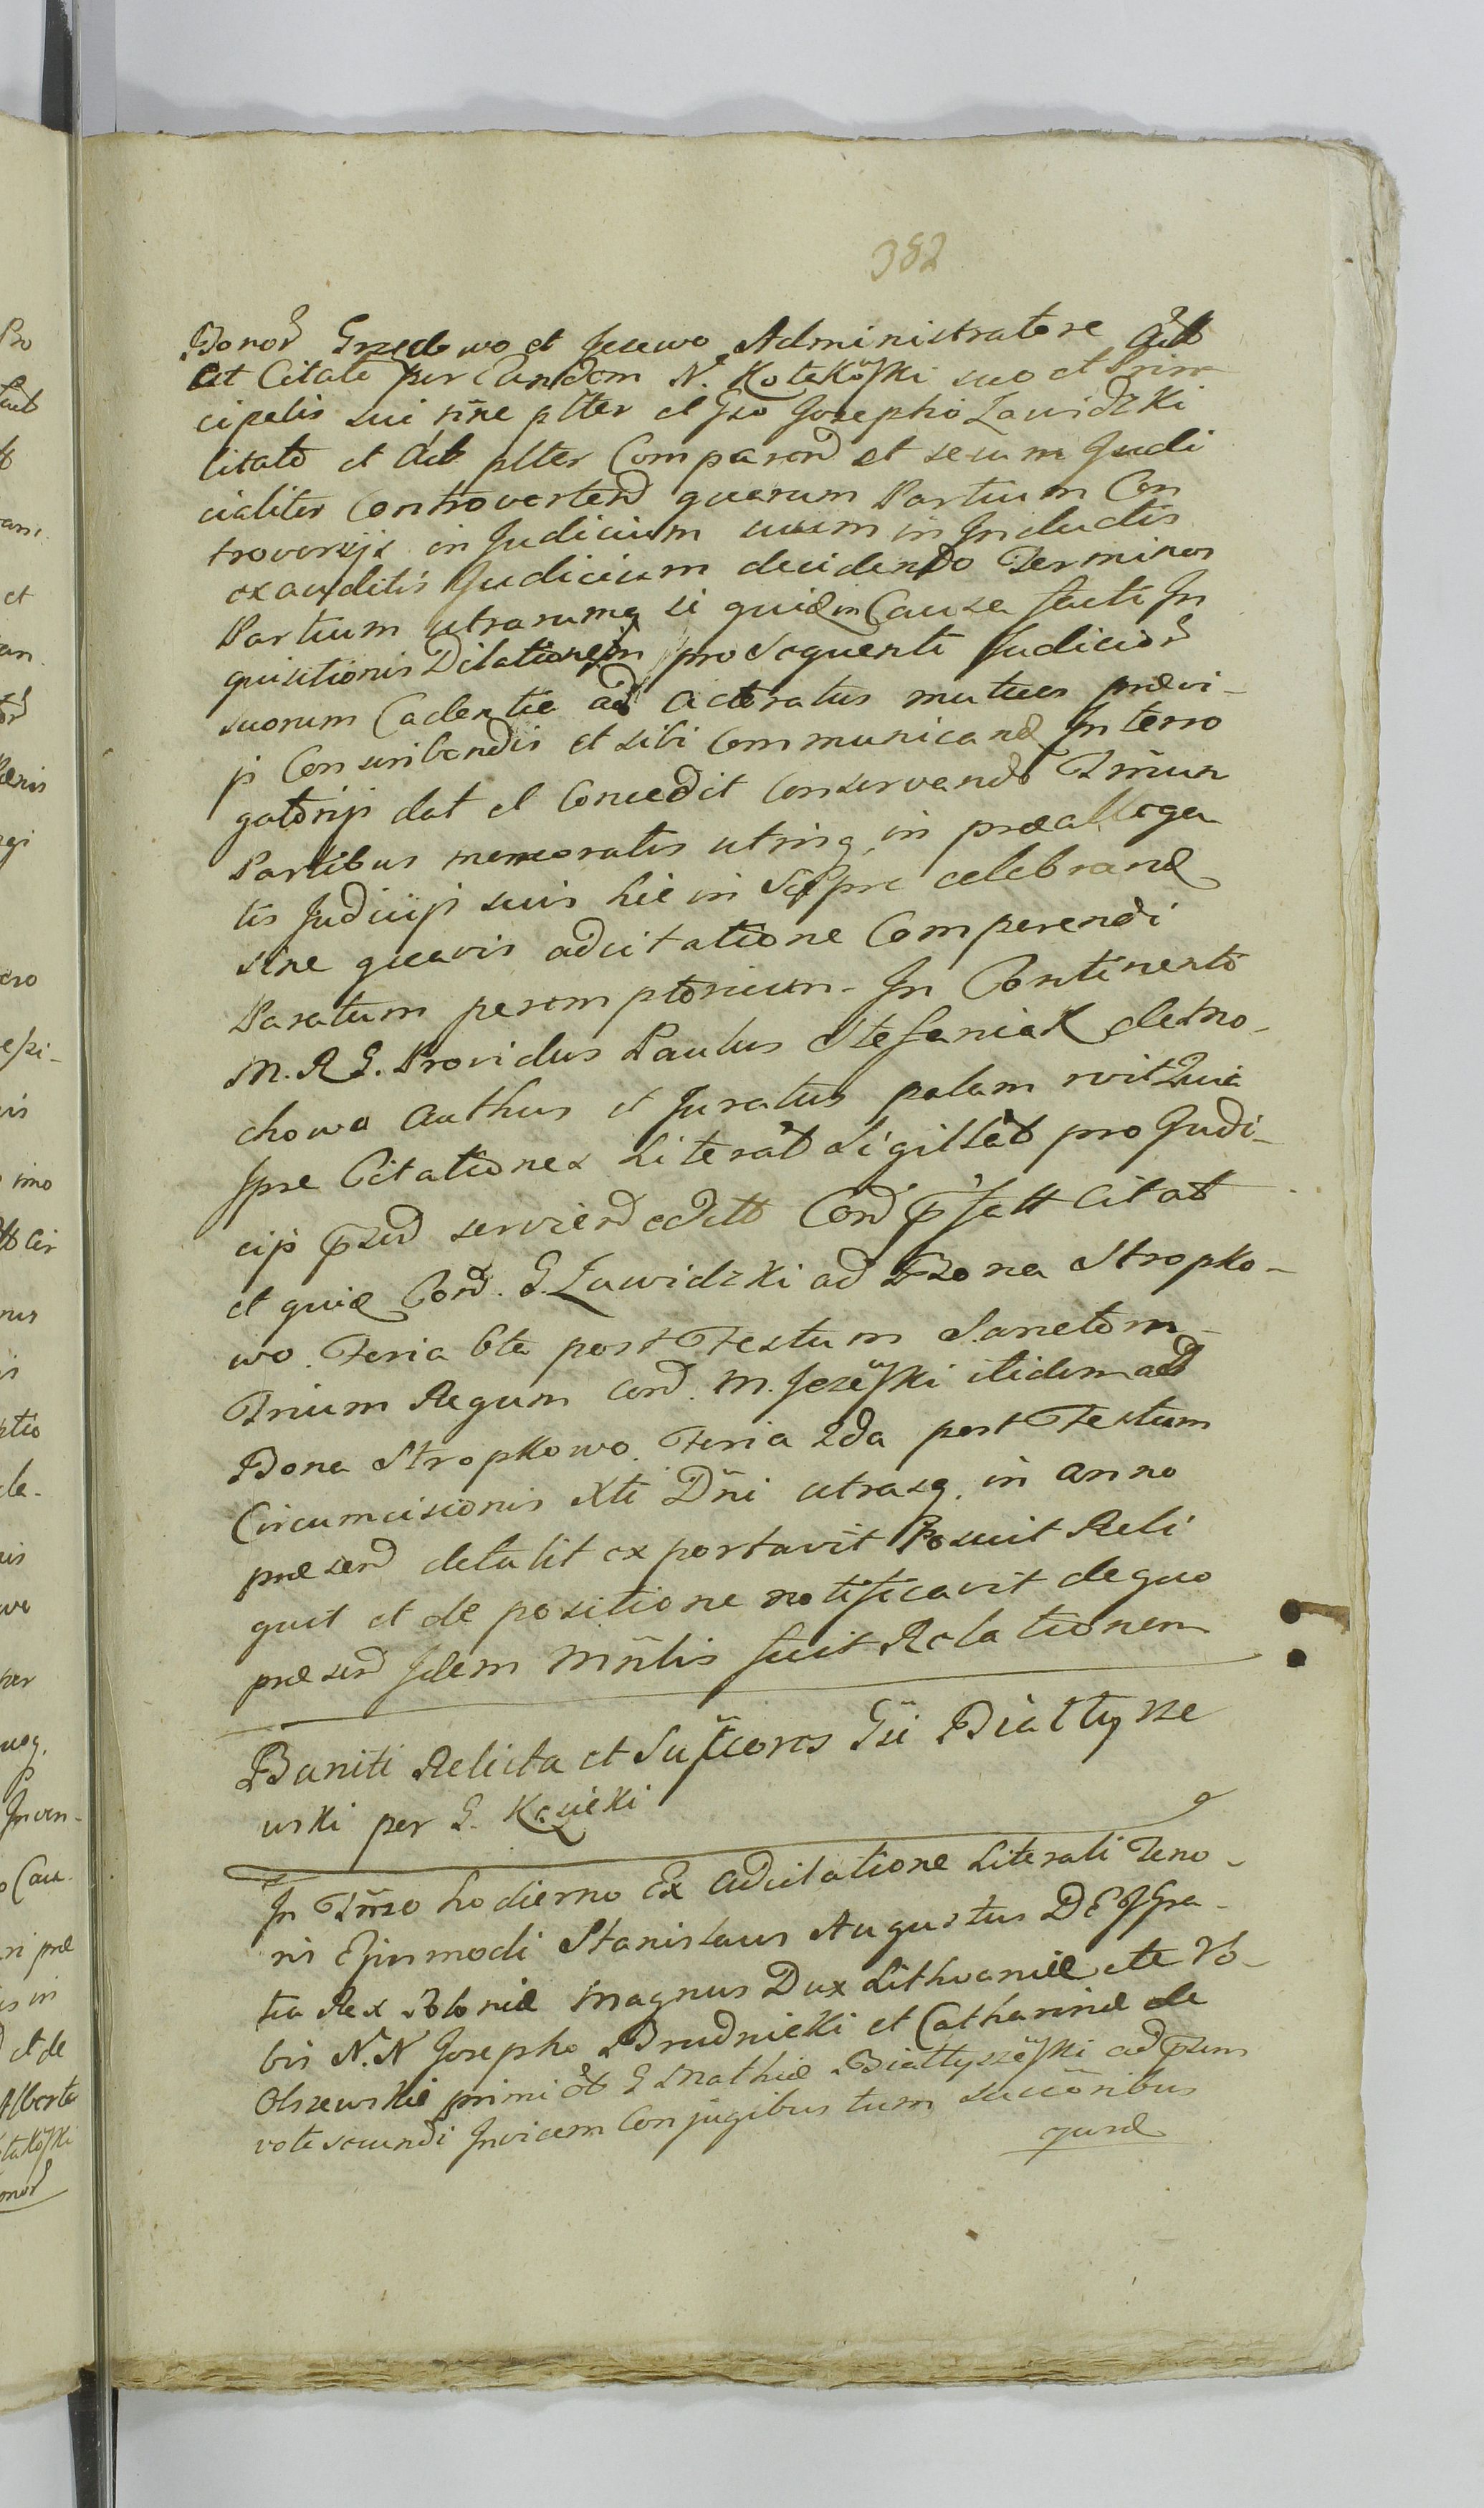 382
Bonor Grzebowo et Jezewo Administratore Actt
et Citate per Eundem N. Kotakoski suo et Prin
cipalis sui nne plter et Gso Josepho Zawidzki
Citato et Act plter Comparend et secum Judi
cialiter Controvertend quarum Partium Con
troversijs in Judicium suum in Inductis
exauditis Judicium decidendo Terminos
Partium utrarumq si quid in Causa facti In
quisitionis Dilationem pro sequenti Judicior
suorum Cadentia ad Actoratus mutuos prævi-
js Conscribendis et sibi Communicand Interro
gatorijs dat et Concedit Conservando Tmun
Partibus memoratis utrinq. in præallega
tis Judicijs suis hic in Sepre celebrand
sine quavis adcitatione Comparendi
Paratum peremptorium - In Continenti
M. R G. Providus Paulus Stefaniak de Mo-
chowo Authus et Juratus palam rvit Quia
Ipse Citationes Literat Sigillat pro Judi-
cijs præsend serviend edit Cord
et quid Cord. G. Zawidzki ad Bona Stropko-
wo. Feria 6ta post Festum Sanctom
Trium Regum Cord. M. Jezeski itidem ad
Bona Stropkowo. Feria 2da post Festum
Circumcisionis Xti Dni utrasq. in anno
præsend detulit exportavit Posuit Reli
quit et de positione notificavit de quo
præsend Idem Mnlis fecit Relationem
Baniti Relicta et Suctcores Gsi Białtysze
wski per G. Kęsicki
In Tmno hodierno Ex Adcitatione Literali Teno-
ris Ejusmodi Stanislaus Augustus DEI Gra-
tia Rex Poloniæ Magnus Dux Lithvaniæ ete Vo-
bis N.N Josepho Brudnicki et Catharinæ de
Olszewskie primi ot G Mathiæ Białtyszeski ad præsens
voti secundi Invicem Conjugibus tum succoribus
quæd